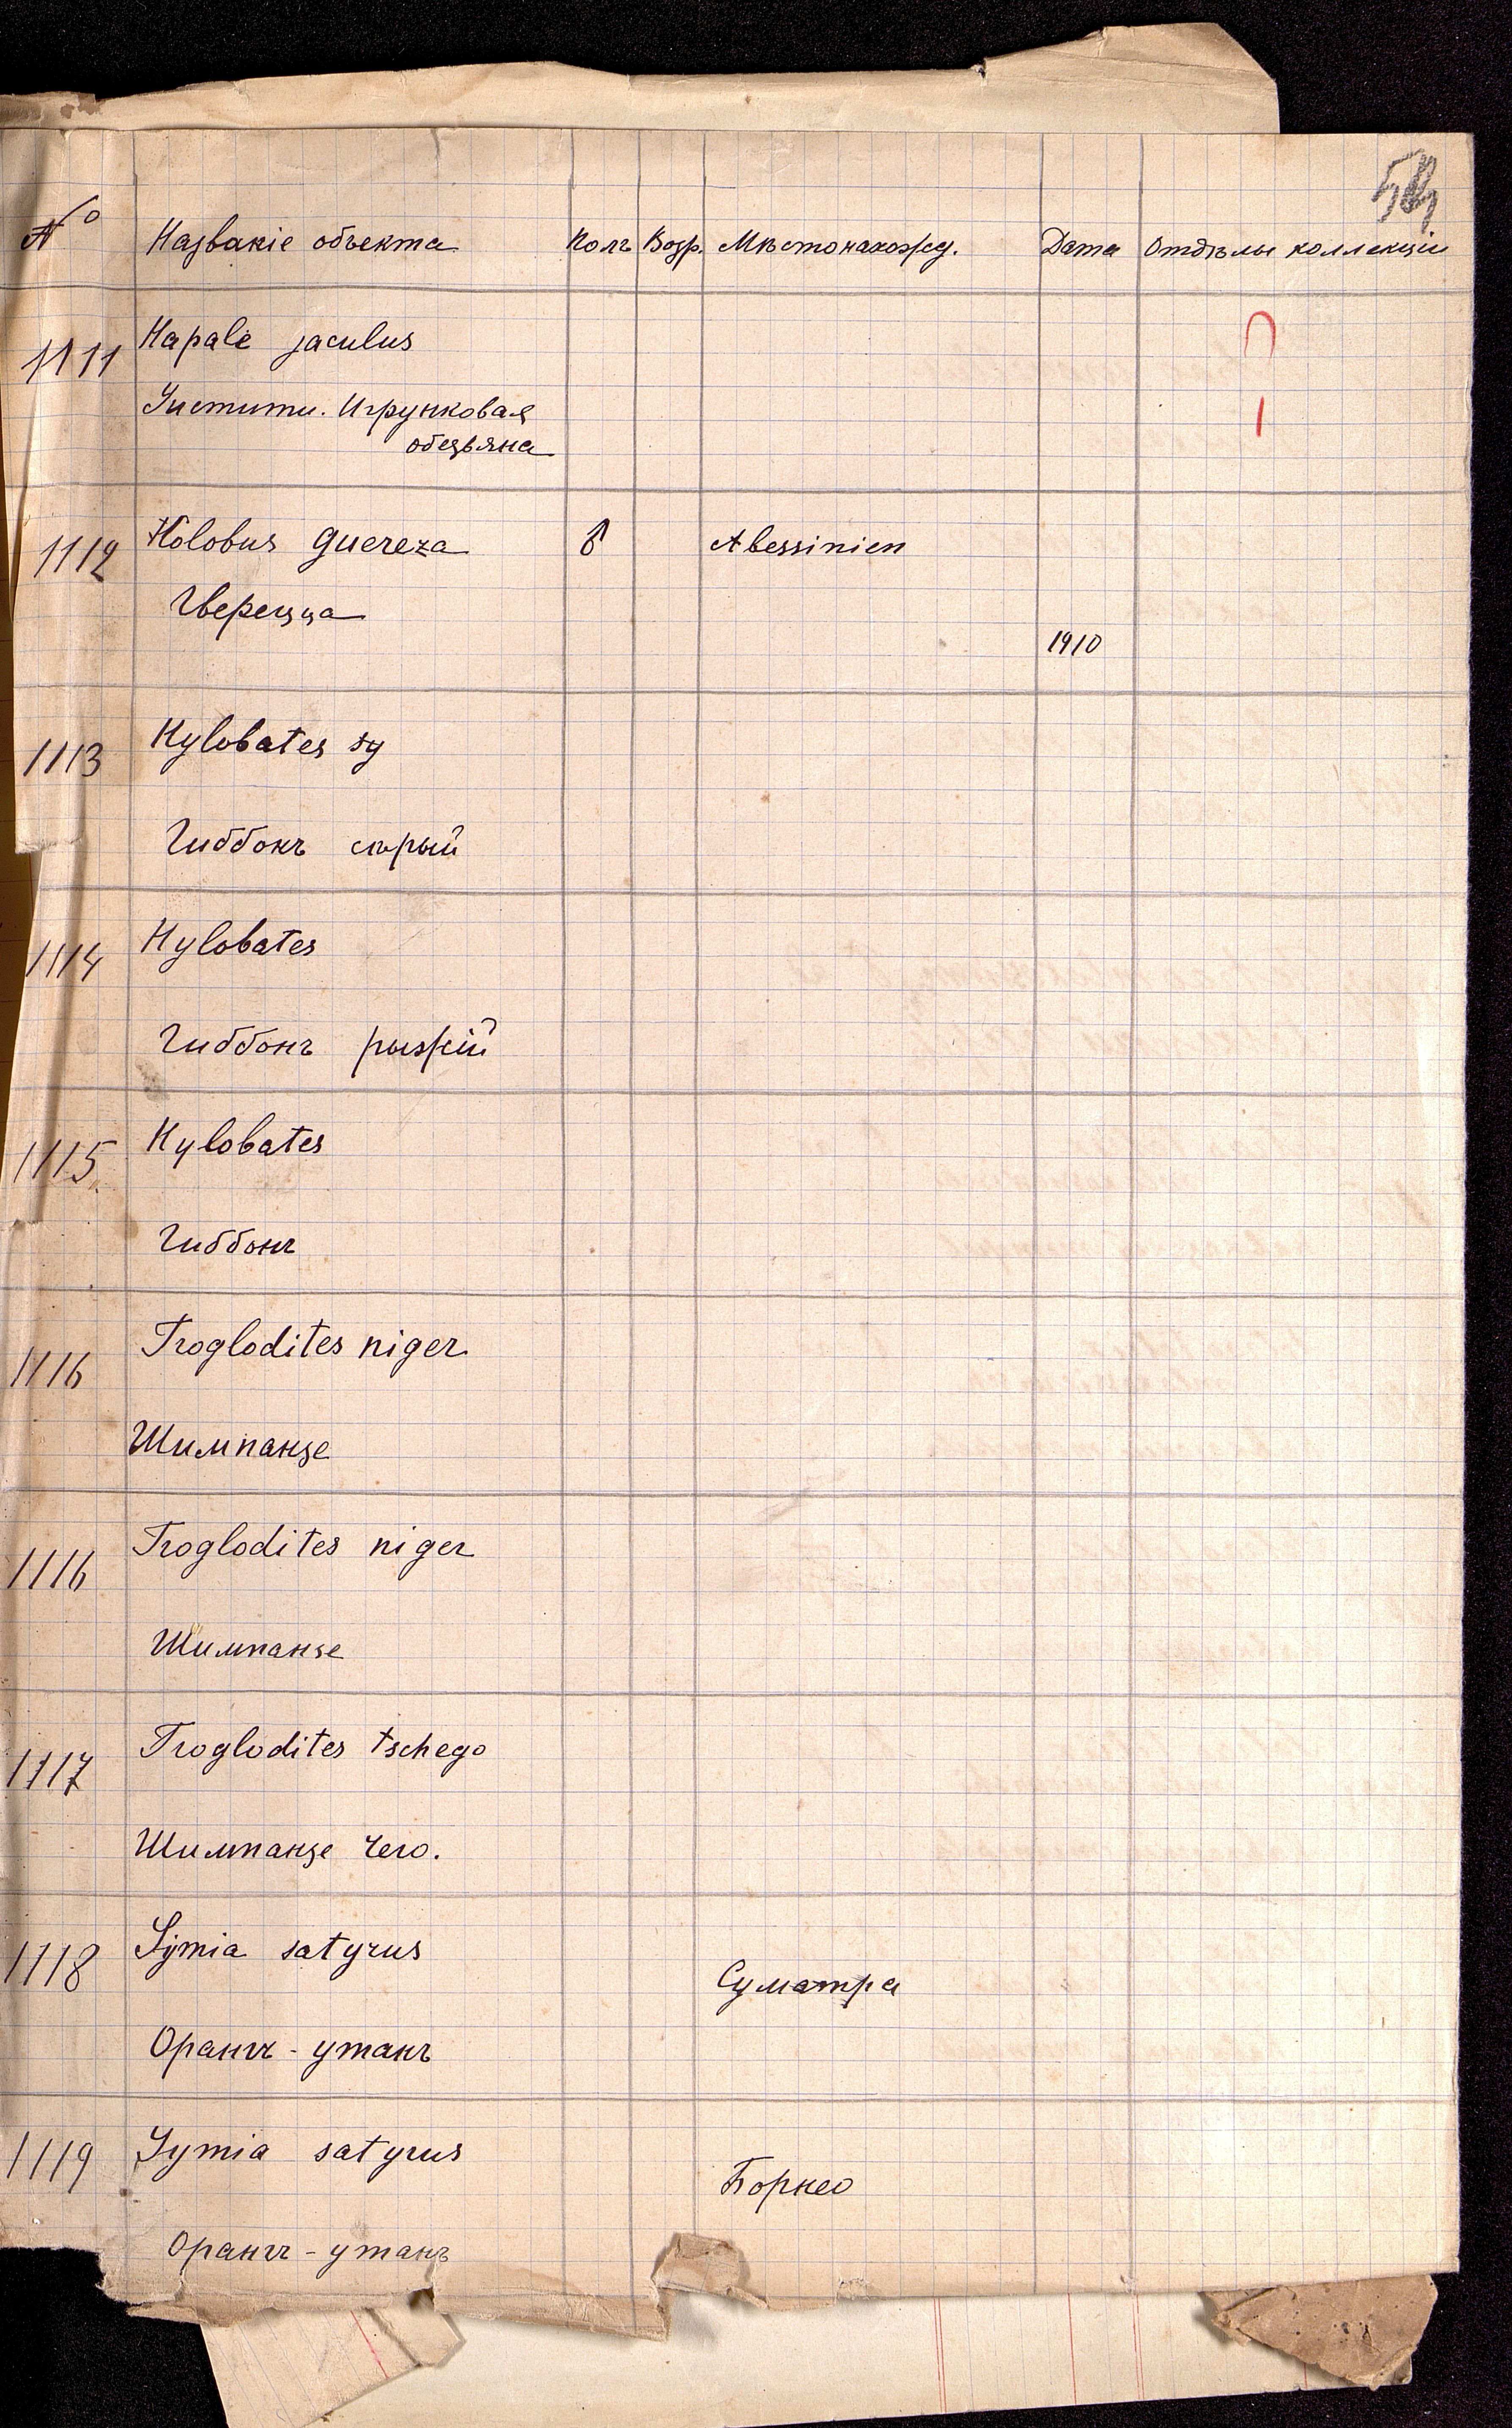 № Названіе объекта Полъ Возр. Мѣстонахожд. Дата Отдѣлы коллекціи
1111 Hapale jaculus
Уистити. Игрунковая
обезьяна
1112 Kolobus guereza ♂ Abessinien
Гверецца
1910
1113 Hylobates sy
Гиббонъ сѣрый
1114 Hylobates
Гиббонъ рыжій
1115. Hylobates
Гиббонъ
1116 Troglodites niger
Шимпанзе
1116 Troglodites niger
Шимпанзе
1117 Troglodites tschego
Шимпанзе чего.
1118 Symia satyrus
Суматра
Орангъ-утанъ
1119 Symia satyrus
Борнео
Орангъ-утанъ